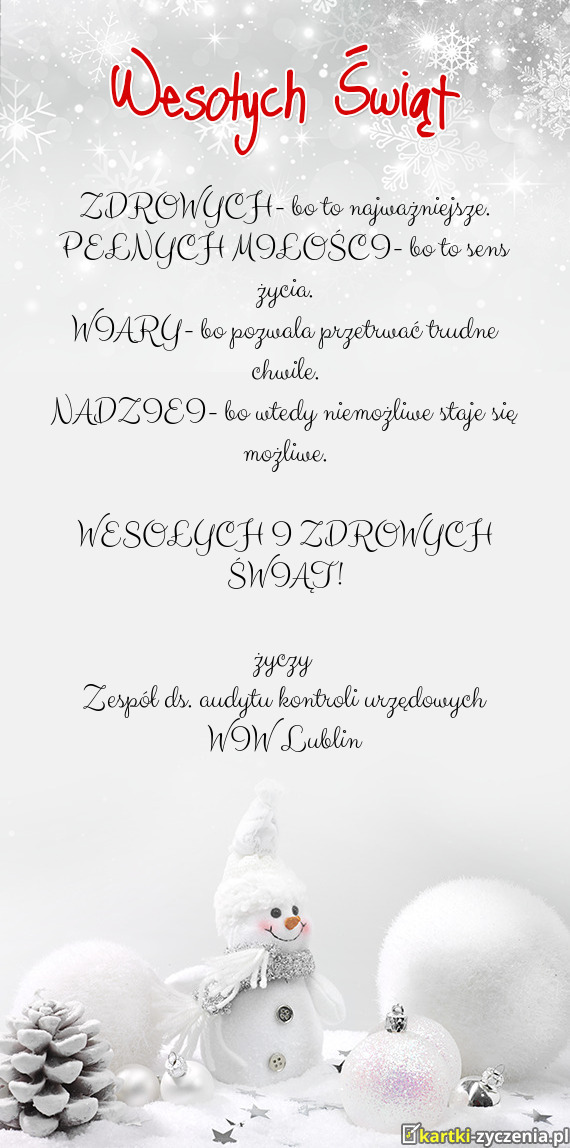 Wesołych Świąt
ZDROWYCH- bo to najważniejsze.
PEŁNYCH MIŁOŚCI- bo to sens
życia.
WIARY- bo pozwala przetrwać trudne
chwile.
NADZIEI- bo wtedy niemożliwe staje się
możliwe.
WESOŁYCH I ZDROWYCH
ŚWIĄT!
życzy
Zespół ds. audytu kontroli urzędowych
WIW Lublin
kartki-zyczenia.pl